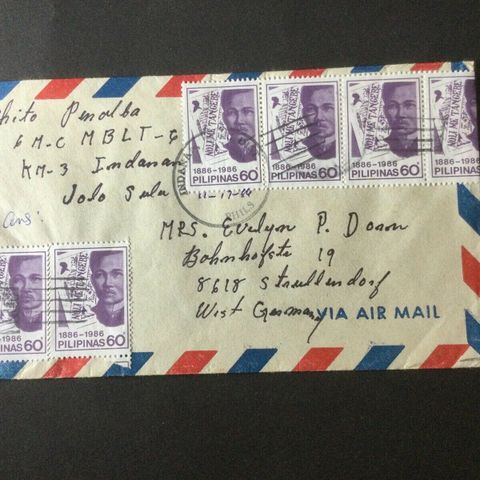 chito Penalba
6 M-C MBLT-6
KM-3 Indanan
Jolo Sulu
Ans:
NOLI ME TANGERE
1886-1986
PILIPINAS 60
NOLI ME TANGERE
1886-1986
PILIPINAS 60
NOLI ME TANGERE
1886-1986
PILIPINAS 60
NOLI ME TANGERE
1886-1986
PILIPINAS 60
INDANA
PHILS
MRS. Evelyn P. Doron
Bahnhofstr 19
8618 Strullendorf
West Germany
VIA AIR MAIL
1886-1986
PILIPINAS 60
1886-1986
PILIPINAS 60